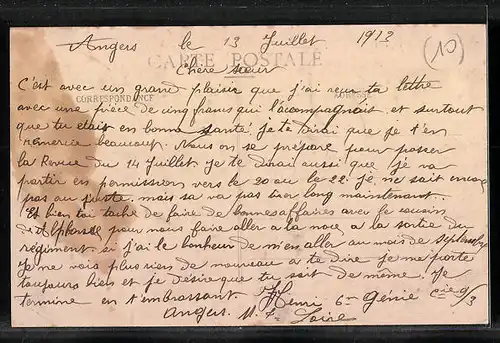 Angers le 13 Juillet 1913
(10)
CARTE POSTALE
Chère sœur
CORRESPONDANCE
C'est avec un grand plaisir que j'ai reçu ta lettre
avec une pièce de cinq francs qui l'acompagnait et surtout
que tu était en bonne santé, je te dirai que je t'en
remercie beaucoup. Nous on se prépare pour passer
la Revue du 14 Juillet je te dirai aussi que je va
partir en permission vers le 20 ou le 22. je ne sait encore
pas au juste. mais sa va pas être long maintenant.
Et bien toi tache de faire de bonnes affaires avec le cousin
d'Alphonse pour nous faire aller a la noce a la sortie du
régiment. si j'ai le bonheur de m'en aller au mois de septembre
Je ne vois plus rien de nouveau a te dire je me porte
toujours bien et je désire que tu soit de même. Je
termine en t'embrassant. Henri 6me Génie Cie 9/3
Angers. M. & Loire